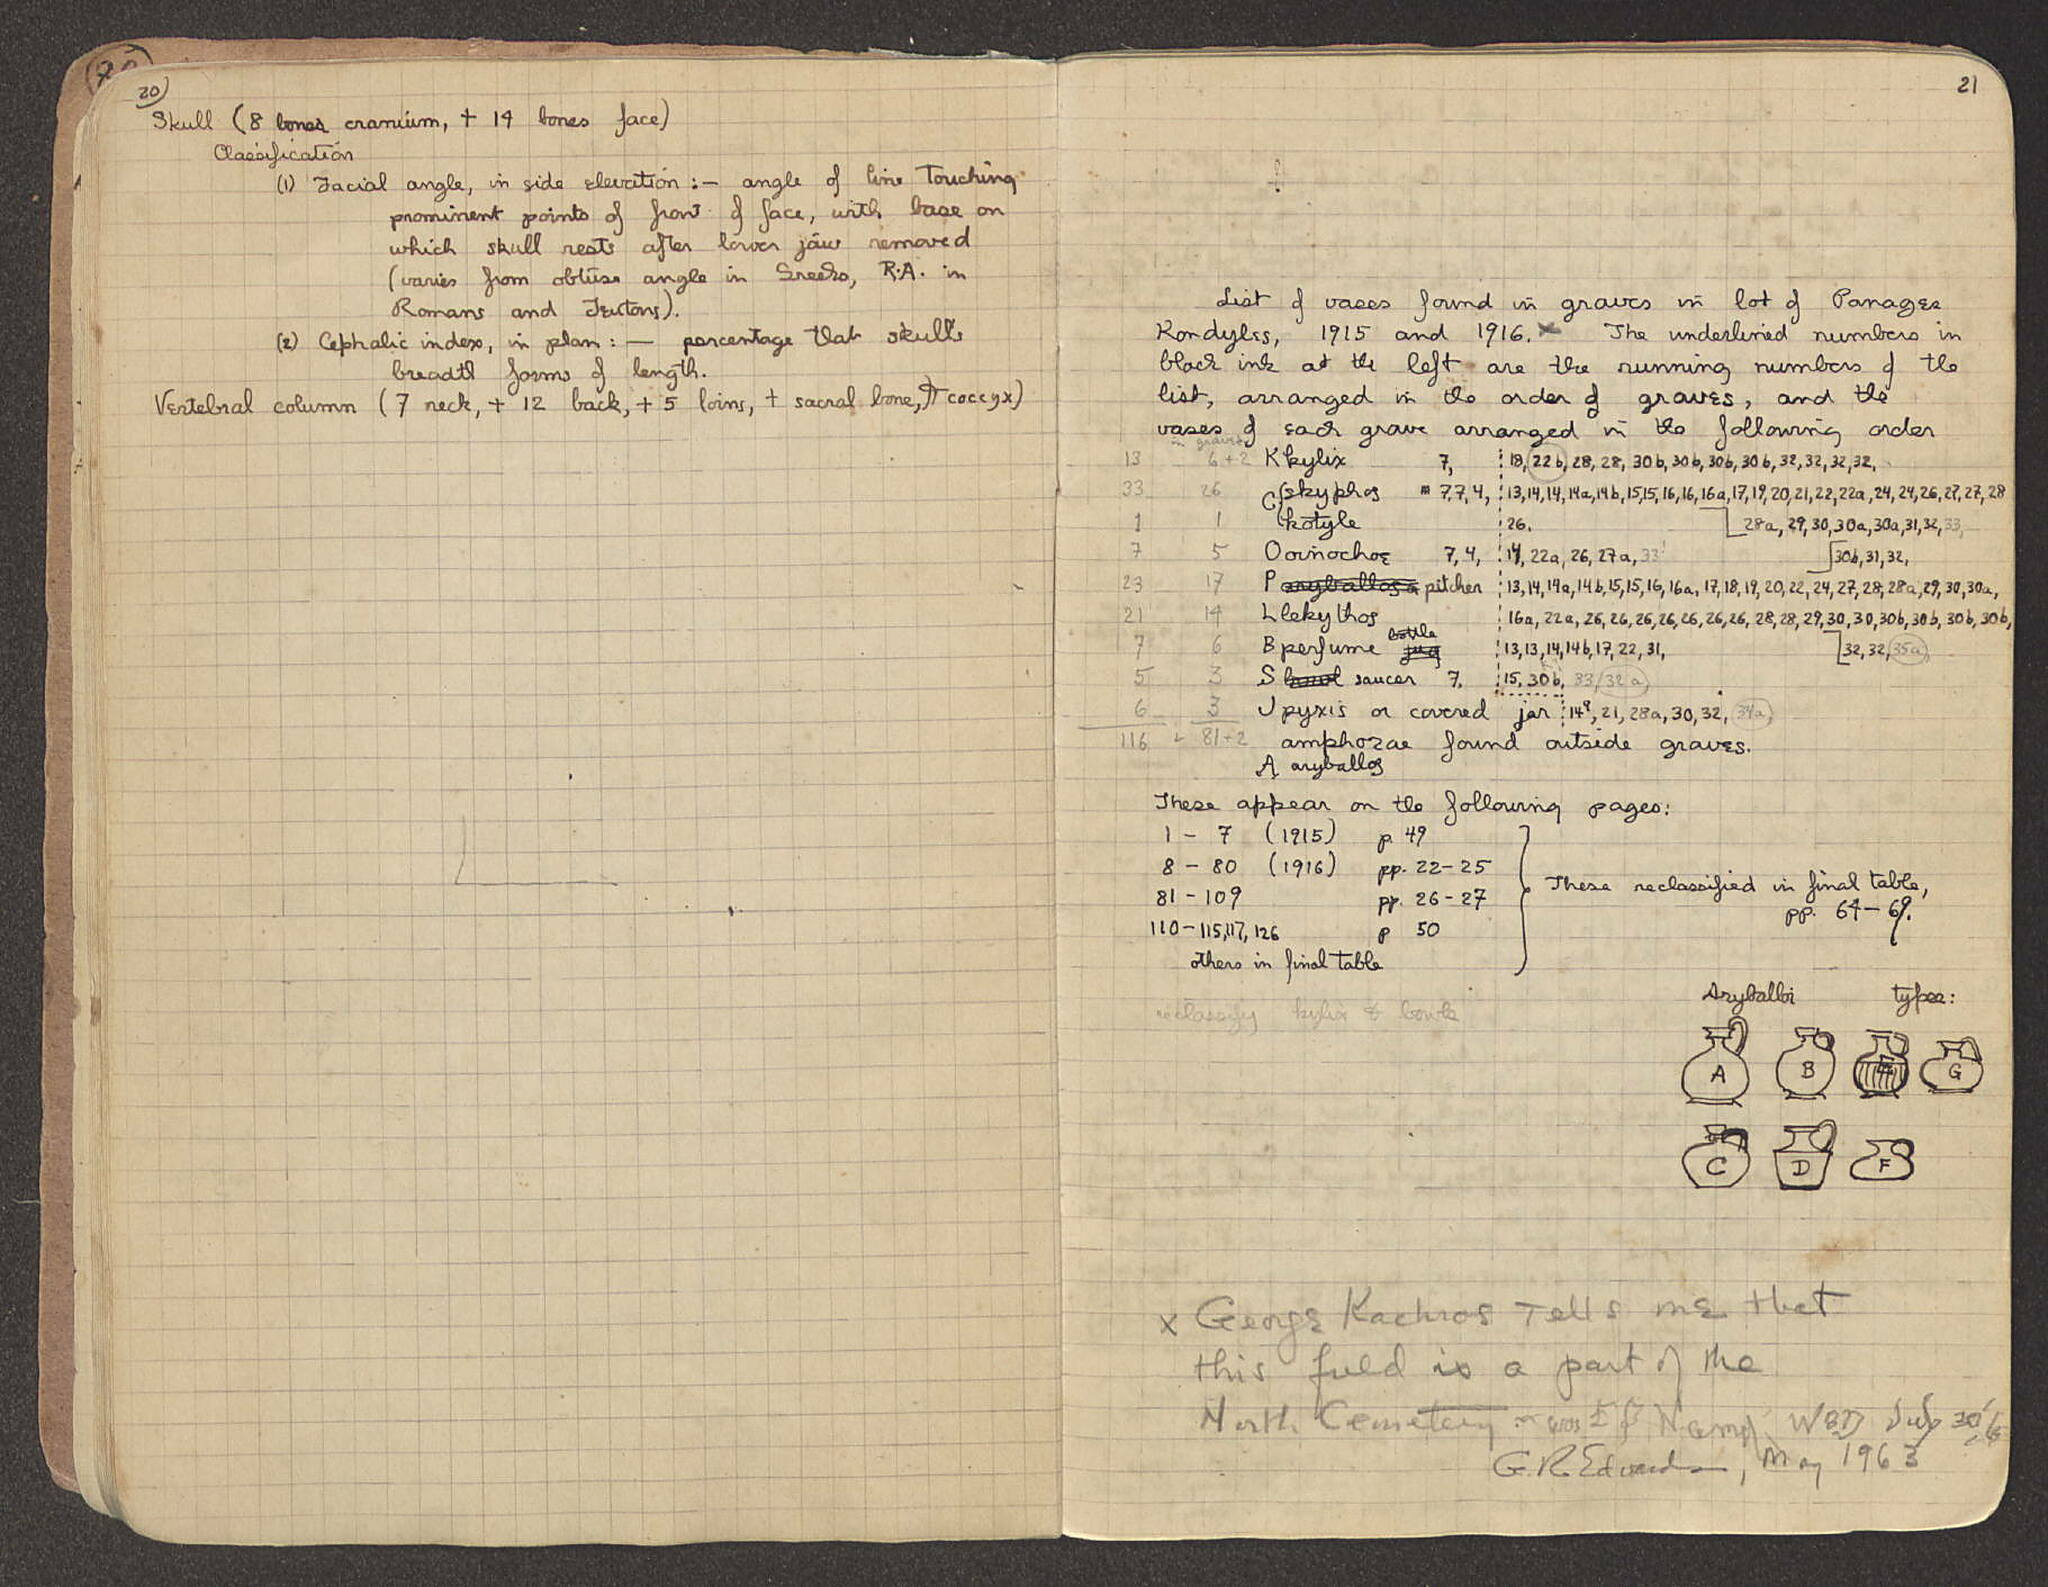 20
Skull (8 bones cranium, + 14 bones face)
Classification
(1) Facial angle, in side elevation :— angle of line Touching
prominent points of front of face, with base on
which skull rests after lower jaw removed
(varies from obtuse angle in Greeks, R.A. in
Romans and Teutons).
(2) Cephalic index, in plan : — percentage that skull's
breadth forms of length.
Vertebral column (7 neck, + 12 back, + 5 loins, + sacral bone, + coccyx)
21
List of vases found in graves in lot of Panages
Kondyles, 1915 and 1916. x The underlined numbers in
black ink at the left are the running numbers of the
list, arranged in the order of graves, and the
vases of each grave arranged in the following order
in graves
13 6+2 K kylix 7, 18, 22b, 28, 28, 30b, 30b, 30b, 30b, 32, 32, 32, 32,
33 26 C skyphos 7,7,4, 13,14,14,14a,14b,15,15,16,16,16a,17,19,20,21,22,22a,24,24,26,27,27,28
1 1 kotyle 26. 28a, 29, 30, 30a, 30a, 31, 32, 33,
7 5 O oinochoe 7, 4, 14, 22a, 26, 27a, 33 30b, 31, 32,
23 17 P aryballos pitcher 13,14,14a,14b,15,15,16,16a,17,18,19,20,22,24,27,28,28a,29,30,30a,
21 14 L lekythos 16a, 22a, 26, 26, 26, 26, 26, 26, 26, 28, 28, 29, 30, 30, 30b, 30b, 30b, 30b,
7 6 B perfume jug bottle 13,13,14,14b,17,22,31, 32, 32, 35a
5 3 S bowl saucer 7. 15, 30b, 33, 32a
6 3 J pyxis or covered jar 14, 21, 28a, 30, 32, 34a
116 81+2 amphorae found outside graves.
A aryballos
These appear on the following pages:
1 – 7 (1915) p. 49
8 – 80 (1916) pp. 22–25
81 – 109 pp. 26–27
110 – 115, 117, 126 p 50
others in final table
These reclassified in final table,
pp. 64–69.
reclassify kylix & bowls
Aryballoi types:
A B E G
C D F
x George Kachros tells me that
this field is a part of the
North Cemetery
G. R. Edwards, May 1963